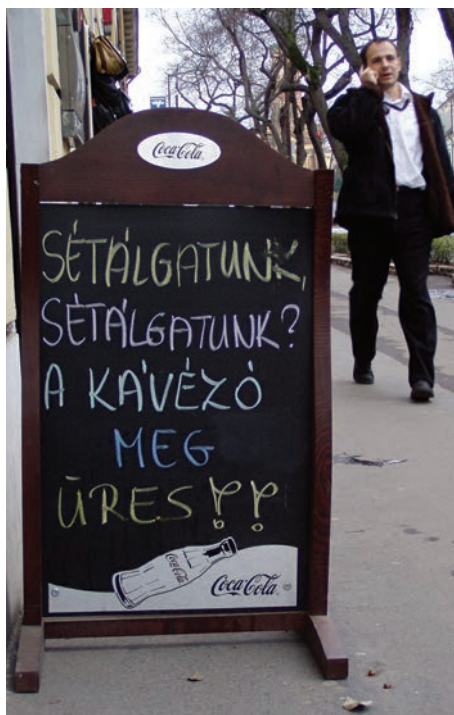 Coca-Cola
SÉTÁLGATUNK,
SÉTÁLGATUNK?
A KÁVÉZÓ
MEG
ÜRES!?
Coca-Cola
Coca-Cola